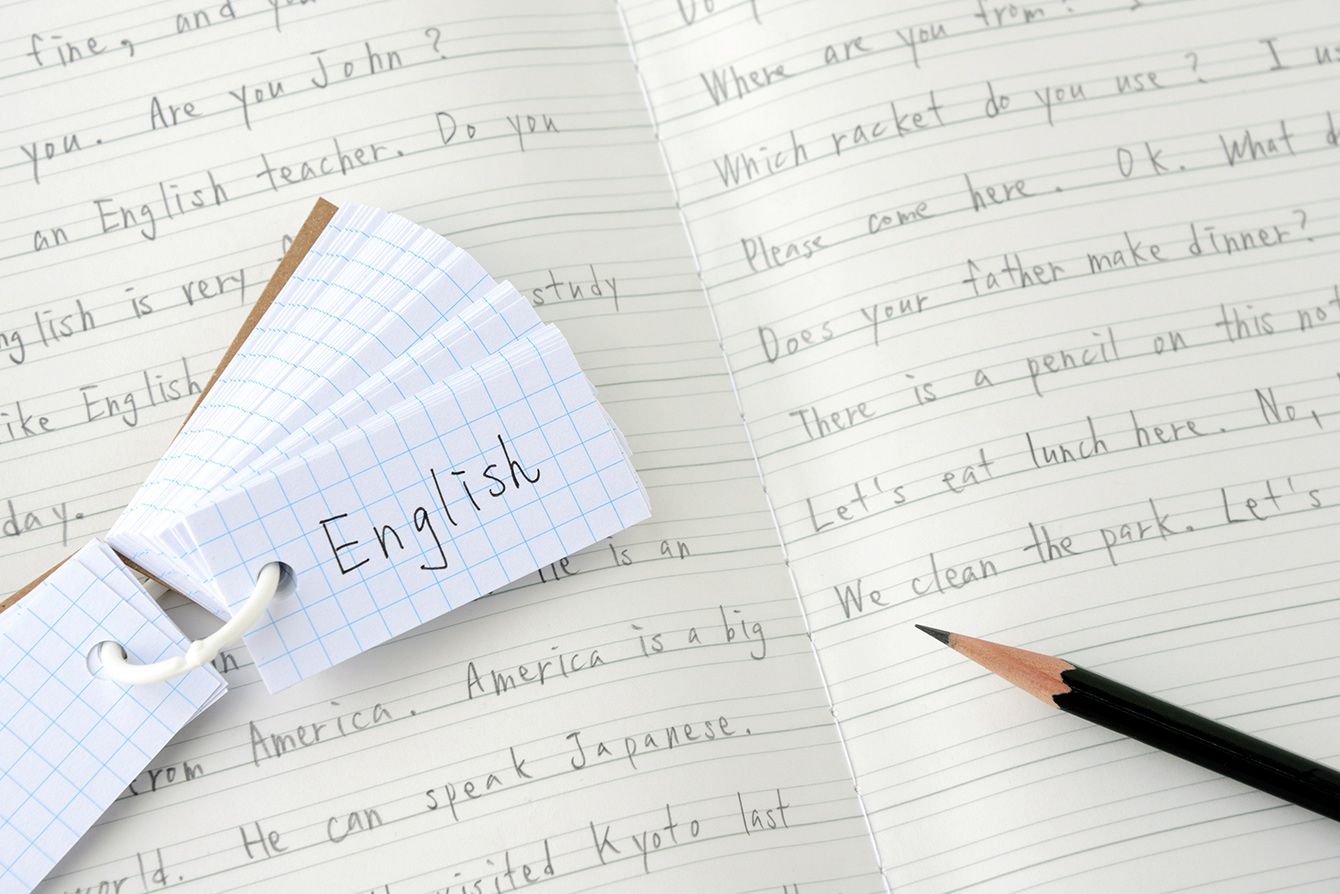 fine, and you
you. Are you John?
an English teacher. Do you
English is very
study
like English
day.
He is an
in
from America. America is a big
world. He can speak Japanese.
visited Kyoto last
English
Do
Where are you from?
Which racket do you use? I
Please come here. Ok. What
Does your father make dinner?
There is a pencil on this
Let's eat lunch here. No,
We clean the park. Let's